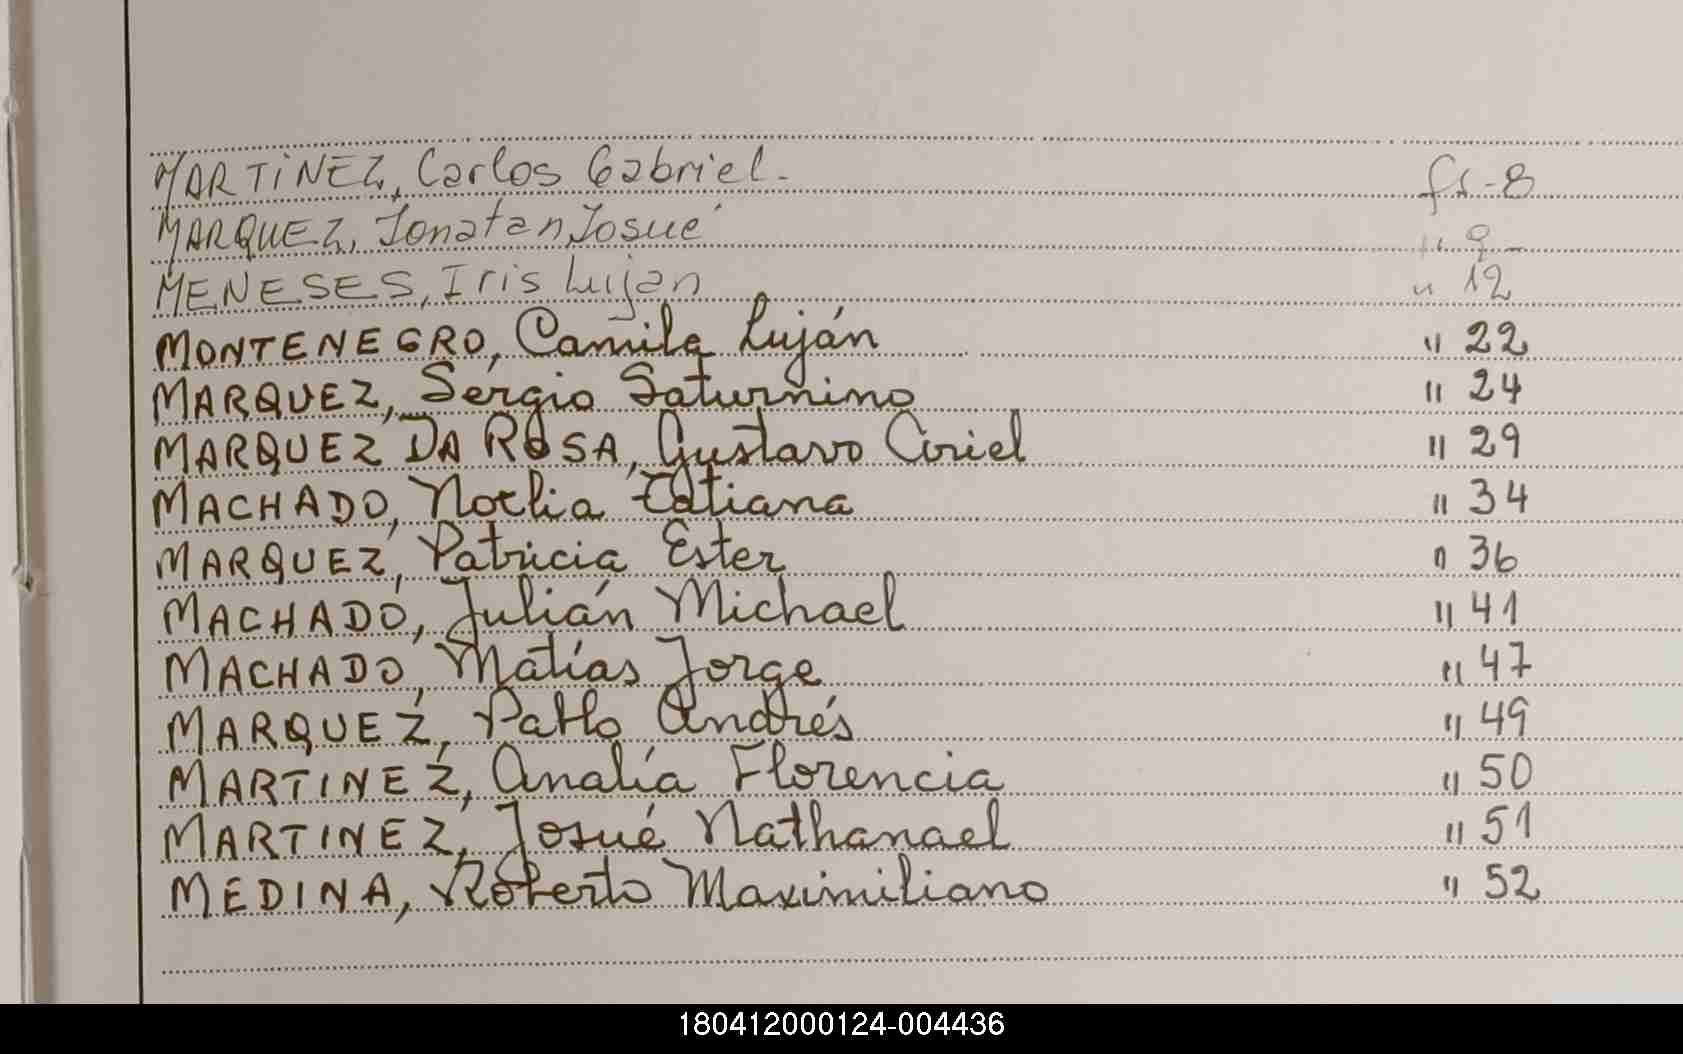 MARTINEZ, Carlos Gabriel. fs-8
MARQUEZ, Jonatan Josué " 9-
MENESES, Iris Lujan " 12
MONTENEGRO, Camila Luján " 22
MARQUEZ, Sergio Saturnino " 24
MARQUEZ DA ROSA, Gustavo Coriel " 29
MACHADO, Noelia Tatiana " 34
MARQUEZ, Patricia Ester " 36
MACHADO, Julián Michael " 41
MACHADO, Matías Jorge " 47
MARQUEZ, Pablo Andrés " 49
MARTINEZ, Analía Florencia " 50
MARTINEZ, Josué Nathanael " 51
MEDINA, Roberto Maximiliano " 52
180412000124-004436